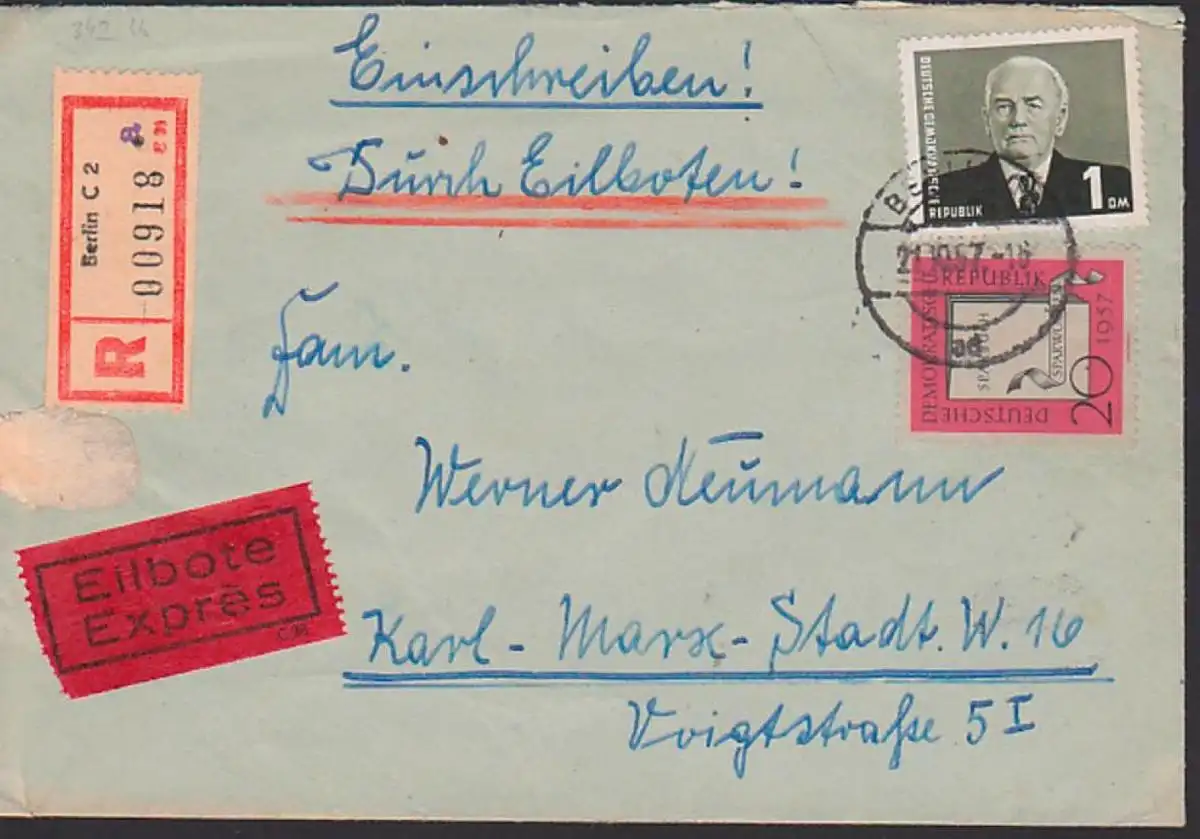 Einschreiben!
Durch Eilboten!
Berlin C 2
a
00918
R
DEUTSCHE DEMOKRATISCHE
REPUBLIK
1 DM
21.10.57.-18
ad
DEUTSCHE
DEMOKRATISCHE
REPUBLIK
SPARBUCH
20
1957
Fam.
Werner Neumann
Eilbote
Exprès
Karl-Marx-Stadt. W. 16
Voigtstraße 5 I